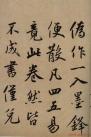 僞作一入墨鋒
便散凡四五易
竟此卷然皆
不成書僅免